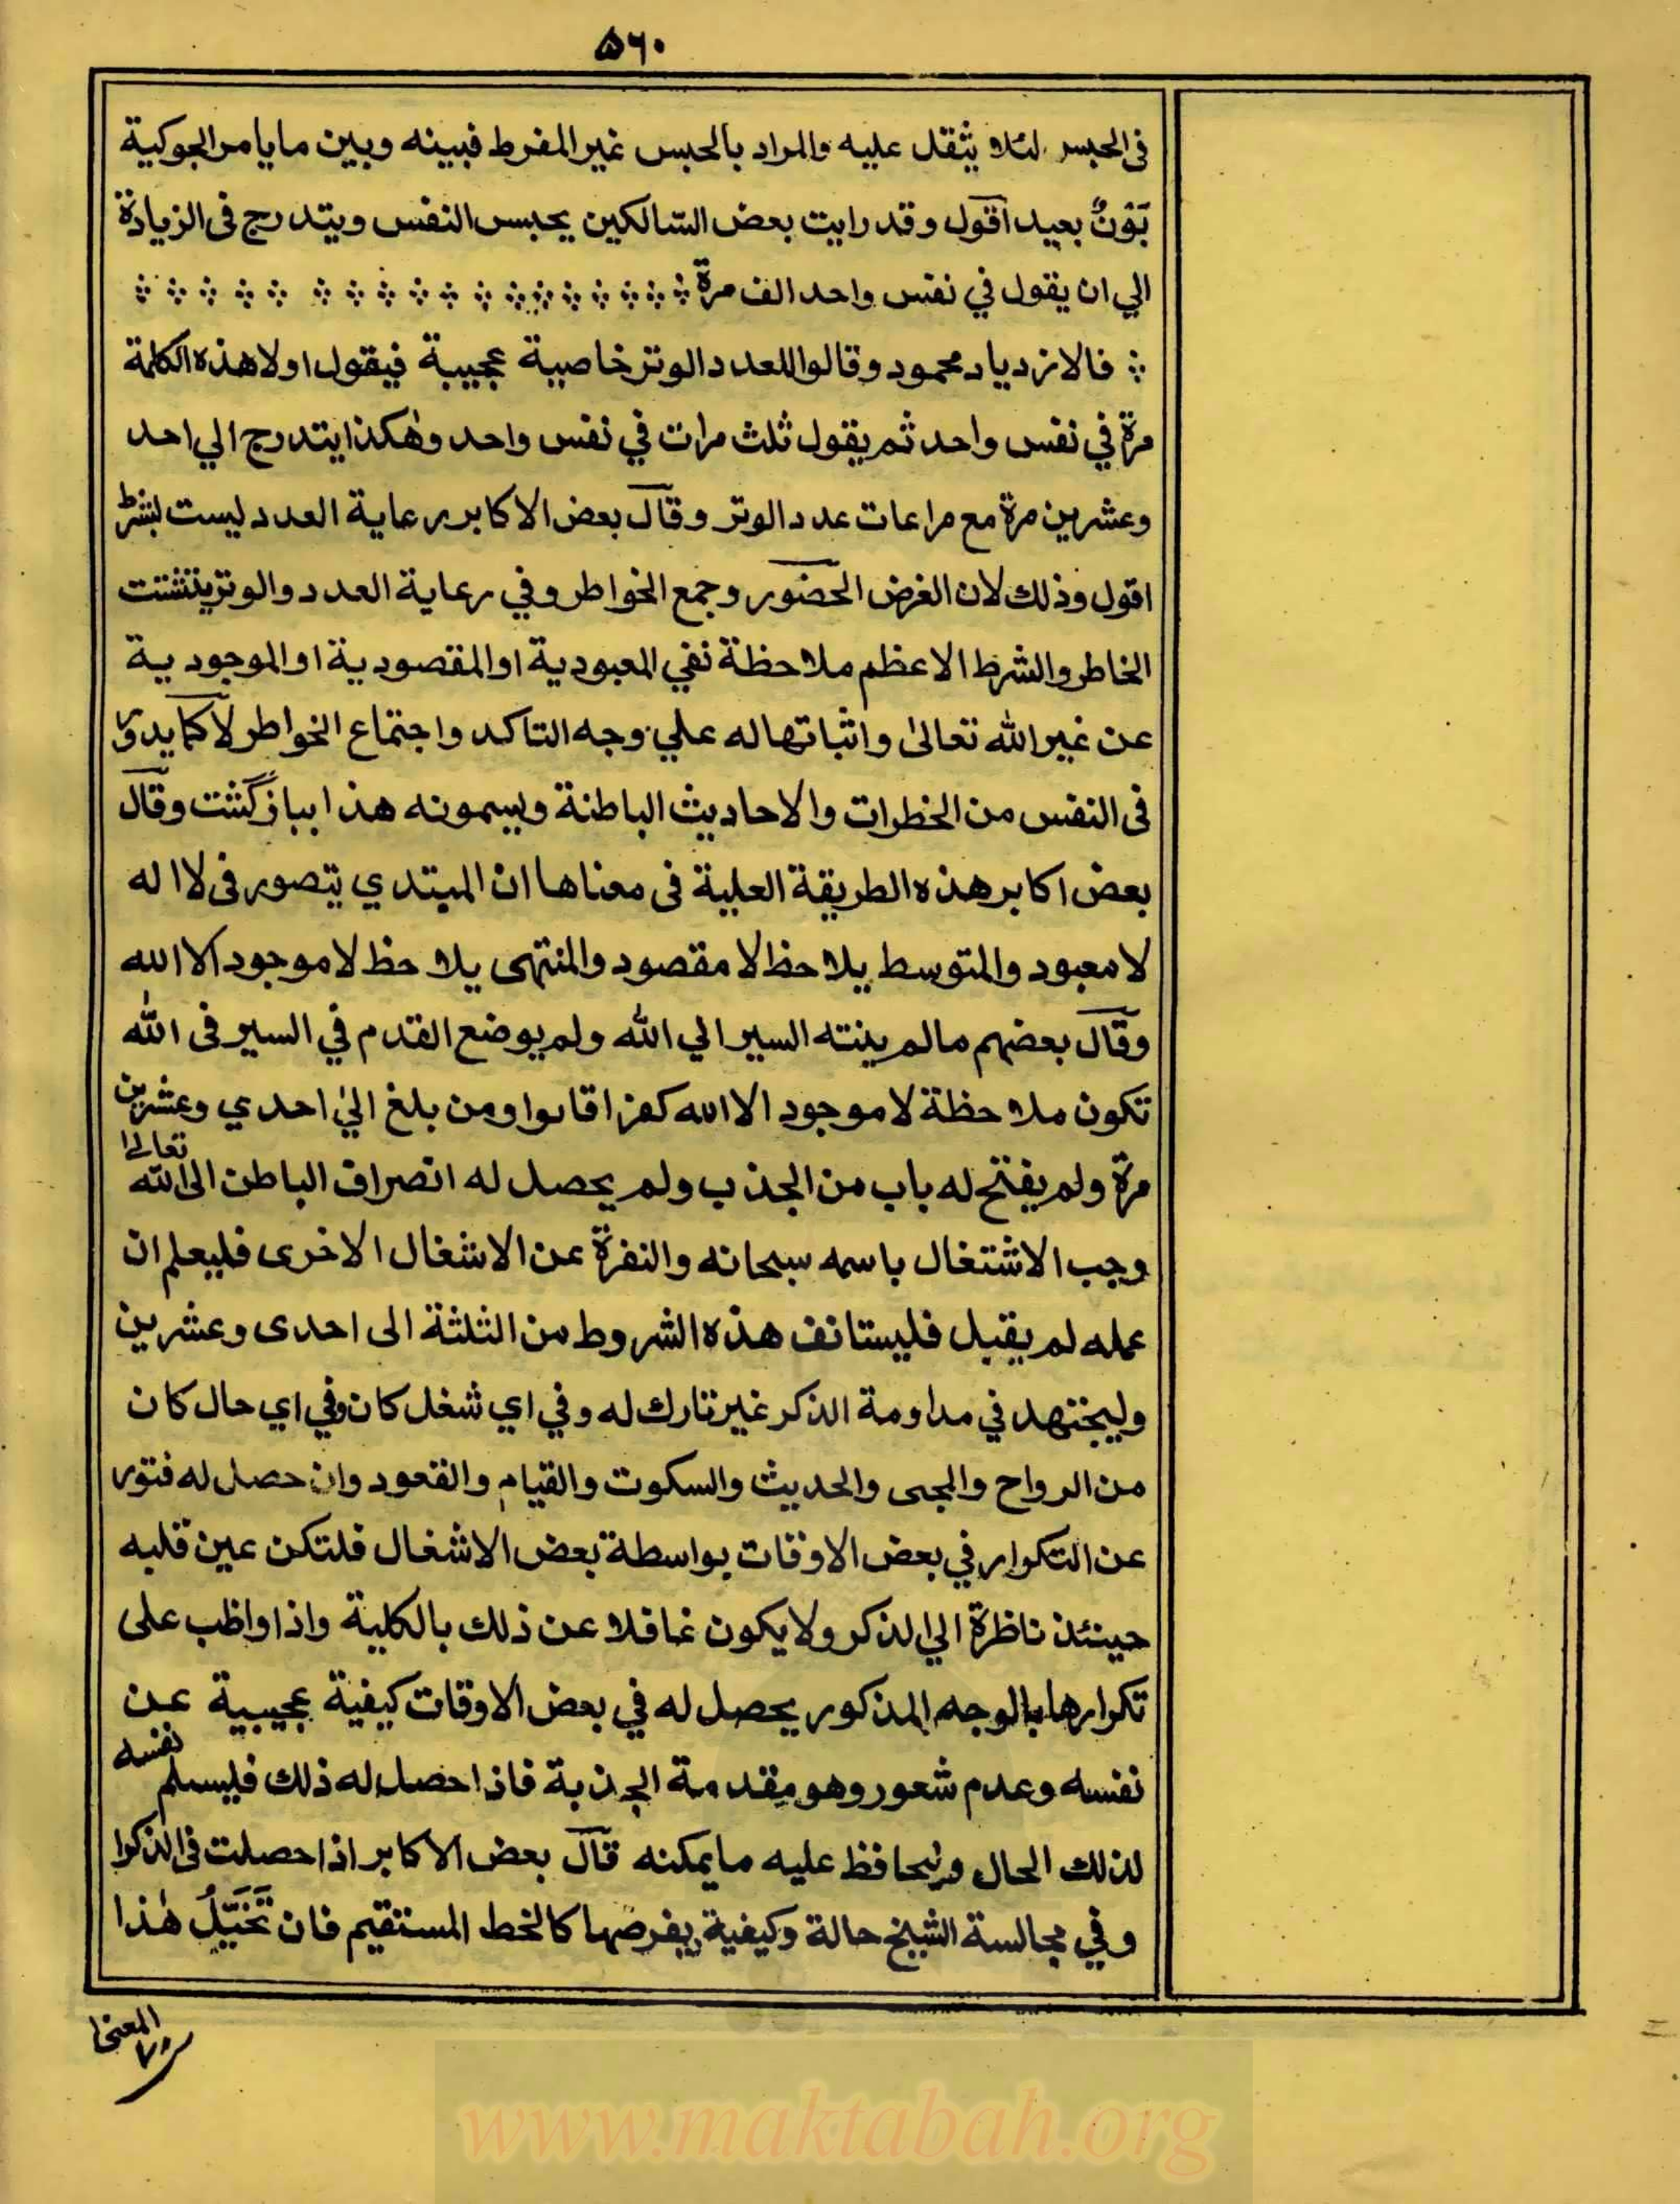 ۵۶۰
فى الحبس لئلا يثقل عليه والمراد بالحبس غير المفرط فبينه وبين مايامر الجوكية
بَوْنٌ بعيد اقول وقد رايت بعض السّالكين يحبس النفس ويتدرج فى الزيادة
الي ان يقول في نفس واحد الف مرة
فالازدياد محمود وقالوا للعدد الوتر خاصية عجيبة فيقول اولا هذه الكلمة
مرة في نفس واحد ثم يقول ثلث مرات في نفس واحد وهٰكذا يتدرج الي احد
وعشرين مرة مع مراعات عدد الوتر وقال بعض الاكابر رعاية العدد ليست بشرط
اقول وذلك لان الغرض الحضور وجمع الخواطر وفي رعاية العدد والوتر يتشتت
الخاطر والشرط الاعظم ملاحظة نفي المعبودية او المقصودية او الموجودية
عن غير الله تعالىٰ واثباتها له علي وجه التاكد واجتماع الخواطر لا كما يدور
فى النفس من الخطرات والاحاديث الباطنة ويسمونه هذا ببازگشت وقال
بعض اكابر هذه الطريقة العلية فى معناها ان المبتدي يتصور فى لا اله
لا معبود والمتوسط يلاحظ لا مقصود والمنتهى يلاحظ لا موجود الا الله
وقال بعضهم مالم ينته السير الي الله ولم يوضع القدم في السير فى الله
تكون ملاحظة لا موجود الا الله كفرا قالوا ومن بلغ الي احدي وعشرين
مرة ولم يفتح له باب من الجذب ولم يحصل له انصراف الباطن الى الله تعالىٰ
وجب الاشتغال باسمه سبحانه والنفرة عن الاشغال الاخرى فليعلم ان
عمله لم يقبل فليستانف هذه الشروط من الثلثة الى احدى وعشرين
وليجتهد في مداومة الذكر غير تارك له وفي اي شغل كان وفي اي حال كان
من الرواح والمجى والحديث والسكوت والقيام والقعود وان حصل له فتور
عن التكرار في بعض الاوقات بواسطة بعض الاشغال فلتكن عين قلبه
حينئذ ناظرة الي الذكر ولا يكون غافلا عن ذلك بالكلية واذا واظب على
تكرارها بالوجه المذكور يحصل له في بعض الاوقات كيفية عجيبية عن
نفسه وعدم شعور وهو مقدمة الجذبة فاذا حصل له ذلك فليسلم نفسه
لذلك الحال وليحافظ عليه ما يمكنه قال بعض الاكابر اذا حصلت فى الذكر ا
وفي مجالسة الشيخ حالة وكيفية يفرضها كالخط المستقيم فان تَخَيَّلُ هٰذا
المعنىٰ
www.maktabah.org